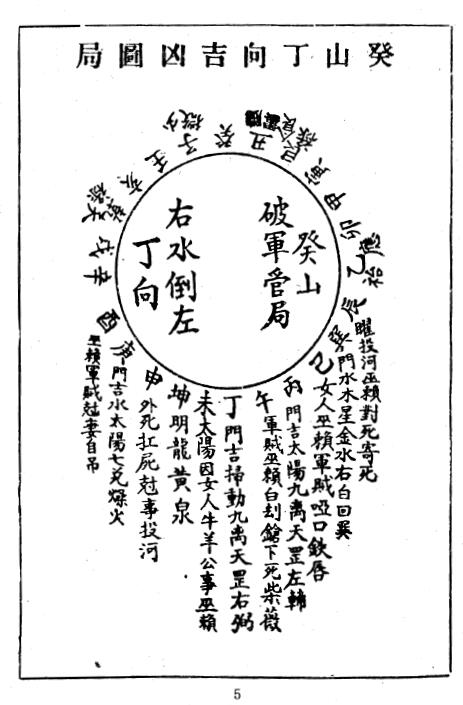 癸山丁向吉凶圖局
破軍管局
癸山
右水倒左
丁向
癸
丑
艮
寅
甲
卯
乙
辰
巽
巳
丙
午
丁
未
坤
申
庚
酉
辛
戌
乾
亥
壬
子
曜投河巫賴對死寄死
門水木星金水右白回巽
女人巫賴軍賊啞口欽唇
門吉太陽九离天罡左輔
軍賊巫賴白刦鎗下死柴薇
門吉掃動九离天罡右弼
太陽因女人牛羊公事巫賴
明龍黄泉
外死扛屍尅事投河
門吉水太陽七兌燥火
巫賴軍賊尅妻自吊
5